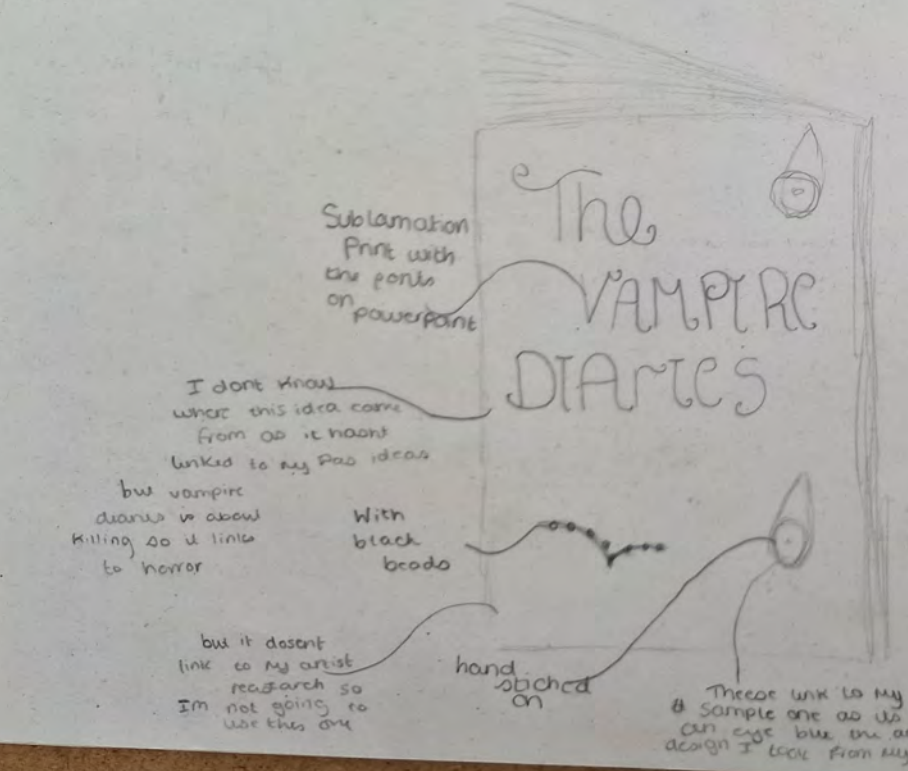 The
VAMPIRE
DIAries
Sublamation
Print with
the fonts
on powerpoint
I dont know
where this idea came
from as it hasnt
linked to my Pas ideas
but vampire
diaries is about
killing so it links
to horror
With
black
beads
but it dosent
link to my artist
reasarch so
Im not going to
use this one
hand
stiched
on
Theese link to my
sample one as its
an eye but the
design I took from my